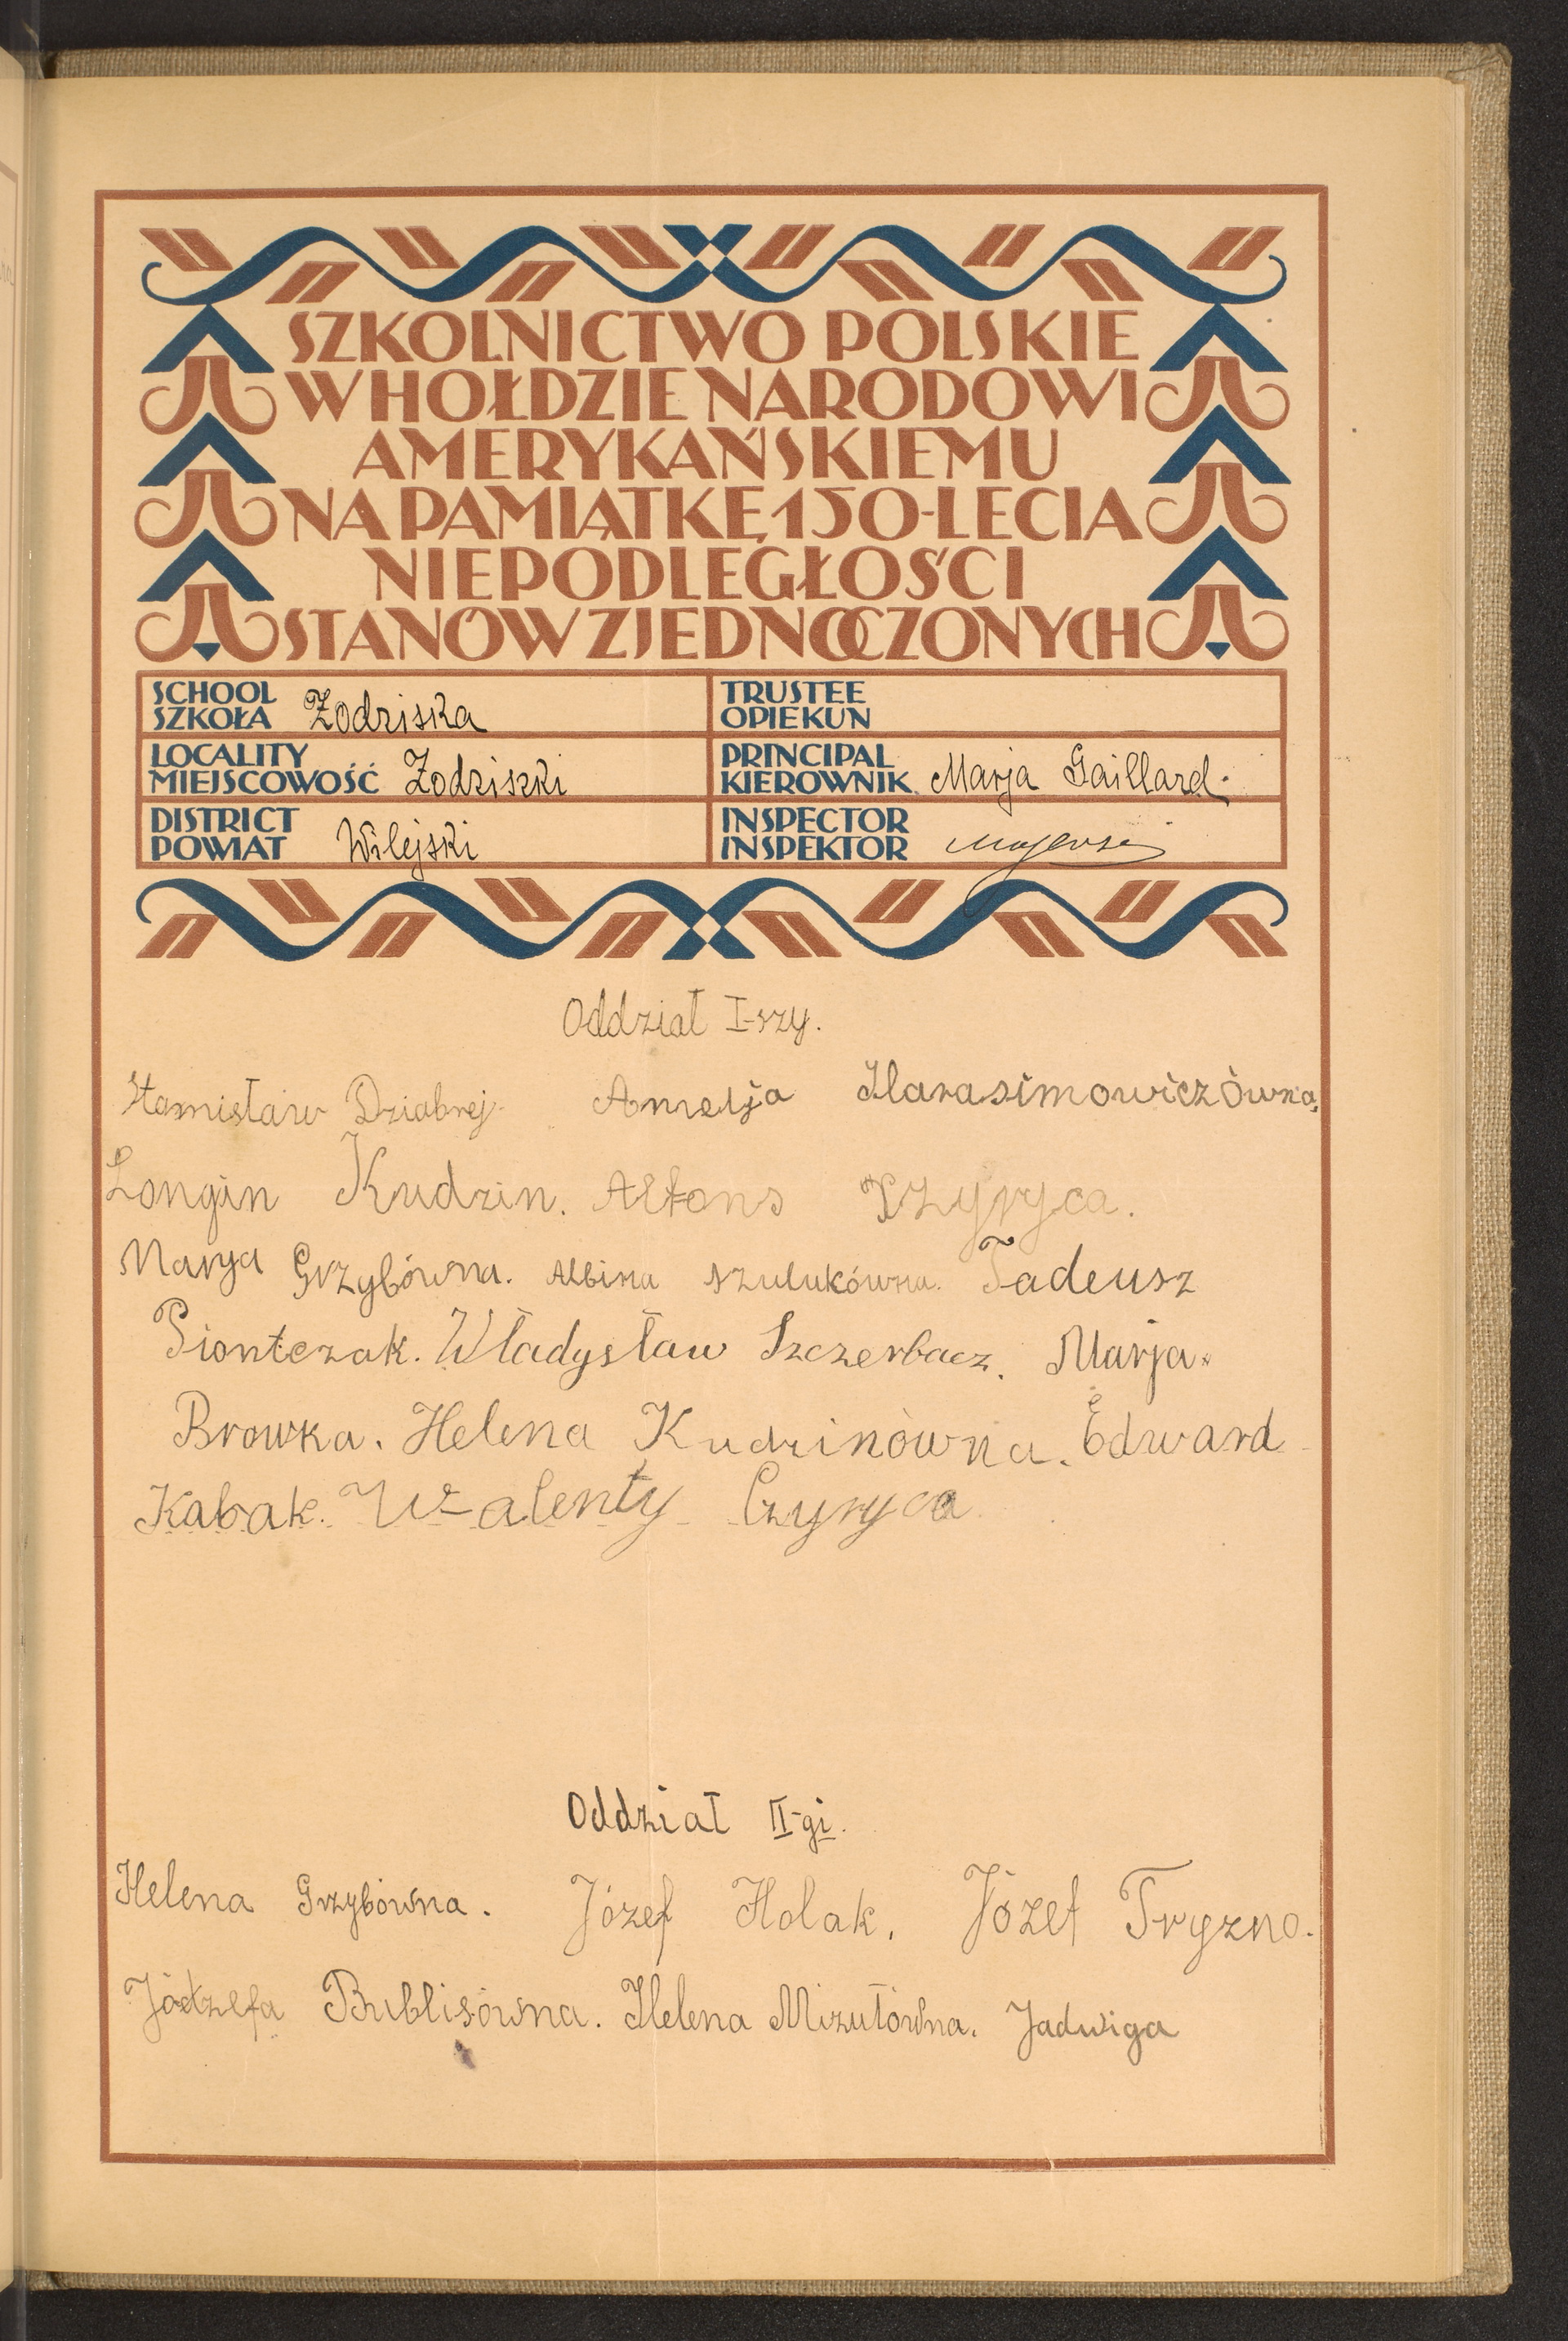 SZKOLNICTWO POLSKIE
W HOŁDZIE NARODOWI
AMERYKAŃSKIEMU
NA PAMIĄTKĘ 150-LECIA
NIEPODLEGŁOŚCI
STANÓW ZJEDNOCZONYCH
SCHOOL
SZKOŁA Żodziska
TRUSTEE
OPIEKUN
LOCALITY
MIEJSCOWOŚĆ Żodziszki
PRINCIPAL
KIEROWNIK Marja Gaillard.
DISTRICT
POWIAT Wilejski
INSPECTOR
INSPEKTOR
Oddział I-szy.
Stanisław Dziabrej. Amelja Harasimowiczówna.
Longin Kudzin. Alfons
Marya Grzybówna. Albina Szulukówna. Tadeusz
Piontczak. Władysław Szczerbacz. Marja
Browka. Helena Kudzinówna. Edward
Kabak. Walenty Czyryca
Oddział II-gi.
Helena Grzybówna. Józef Holak. Józef Tryzno.
Bublisówna. Helena Mizułówna. Jadwiga